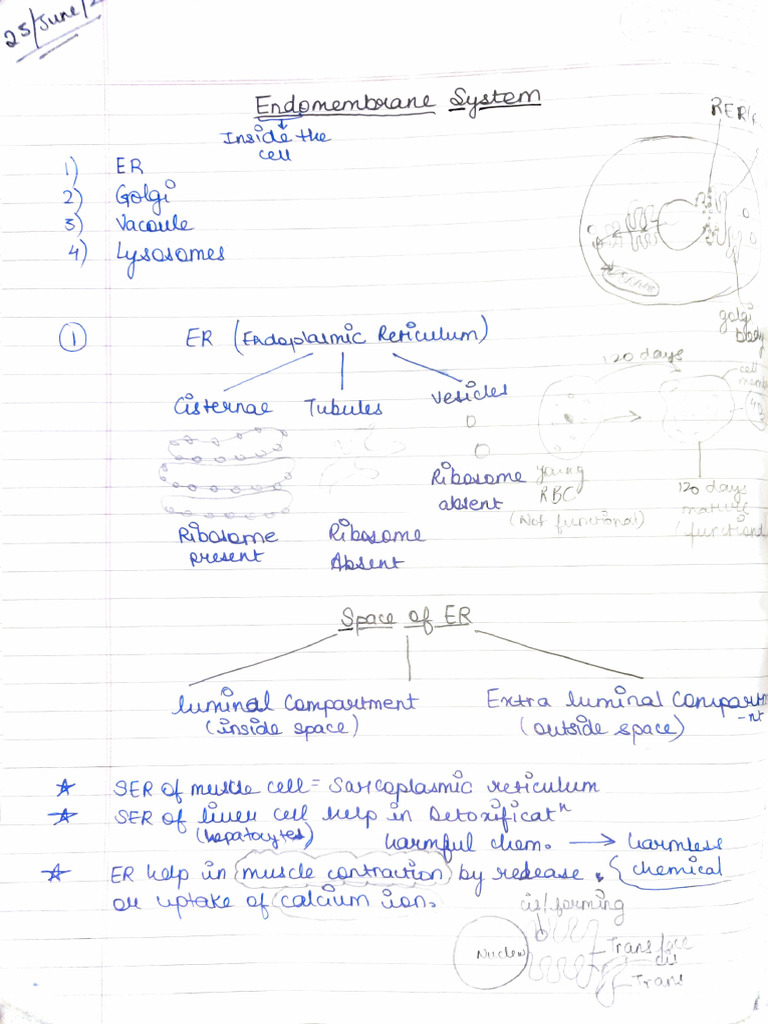 25/June/2
Endomembrane System
Inside the
cell
RER
1) ER
2) Golgi
3) Vacoule
4) Lysosomes
golgi
body
① ER (Endoplasmic Reticulum)
120 days
cell
memb
Cisternae Tubules Vesicles
Ribosome
absent
young
RBC
(Not functional)
120 days
mature
(function
Ribosome
present
Ribosome
Absent
Space of ER
luminal compartment
(inside space)
Extra luminal Compartm
-nt
(outside space)
☆ SER of muscle cell = Sarcoplasmic reticulum
☆ SER of liver cell help in Detoxificatⁿ
(hepatocytes) harmful chem. → harmless
chemical
☆ ER help in muscle contraction by redease
or uptake of calcium ion.
cis/forming
Nucleus
Trans face
cis
Trans